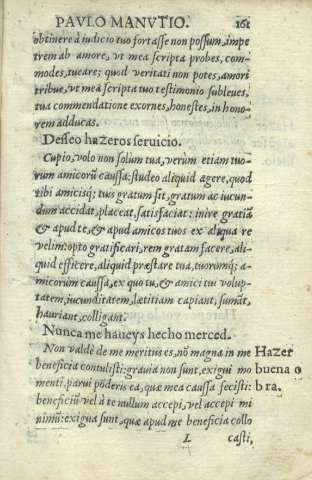 PAVLO MANVTIO. 161
obtinere à iudicio tuo fortasse non possum, impe
trem ab amore, vt mea scripta probes, com-
modes, tueare; quod veritati non potes, amori
tribue, vt mea scripta tuo testimonio subleues,
tua commendatione exornes, honestes, in hono-
rem adducas.
Desseo hazeros seruicio.
Cupio, volo non solum tua, verum etiam tuo-
rum amicorũ caussa: studeo aliquid agere, quod
tibi amicisq; tuis gratum sit, gratum ac iucun-
dum accidat, placeat, satisfaciat: inire gratiã
& apud te, & apud amicos tuos ex aliqua re
velim: opto gratificari, rem gratam facere, ali-
quid efficere, aliquid præstare tua, tuorumq; a-
micorum caussa, ex quo tu, & amici tui volup-
tatem, iucunditatem, lætitiam capiant, sumãt,
hauriant, colligant.
Nunca me haueys hecho merced.
Non valdè de me meritus es, nõ magna in me
beneficia contulisti: grauia non sunt, exigui mo
menti, parui põderis ea, quæ mea caussa fecisti:
beneficiũ vel à te nullum accepi, vel accepi mi
nimũ: exigua sunt, quæ apud me beneficia collo
L casti,
Hazer
buena o
bra.